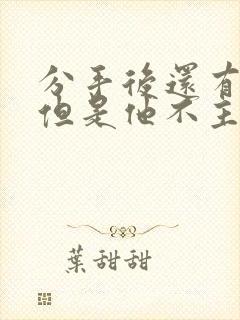 分手後還有
但是他不主
葉甜甜